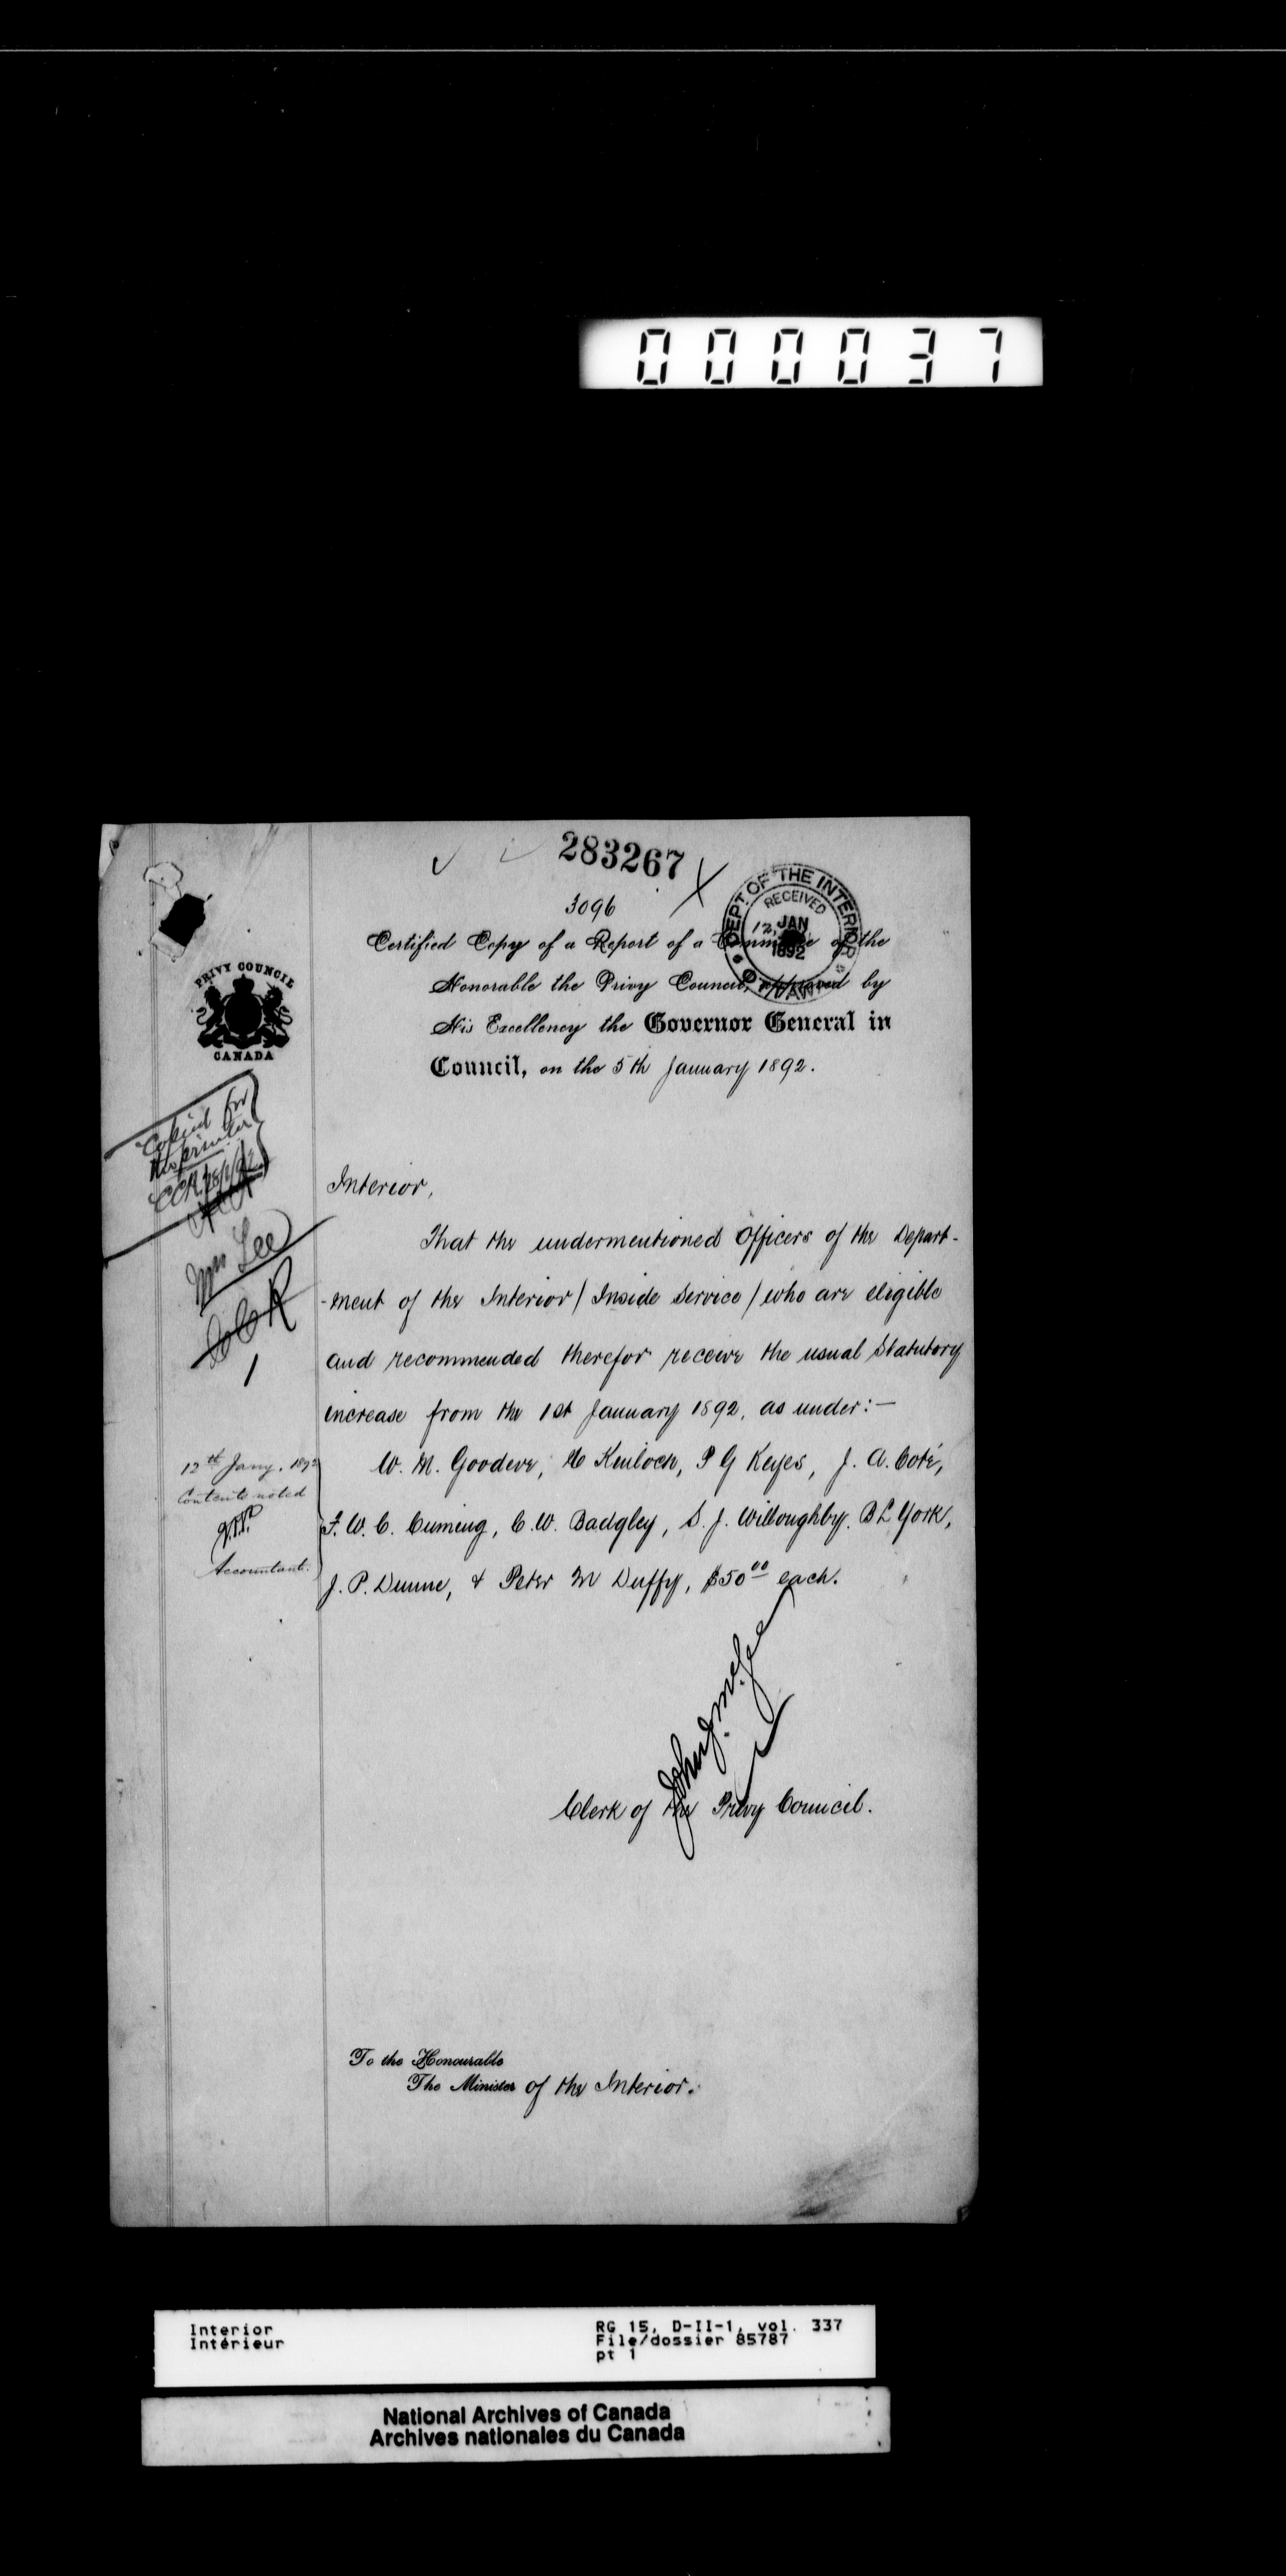 000037
283267
3096
DEPT. OF THE INTERIOR
RECEIVED
12 JAN
1892
OTTAWA
Certified Copy of a Report of a Committee of the
Honorable the Privy Council, approved by
His Excellency the Governor General in
Council, on the 5th January 1892.
PRIVY COUNCIL
CANADA
Copied for
Mr Lee
Interior,
That the undermentioned Officers of the Depart-
-ment of the Interior (Inside Service) who are eligible
and recommended therefor receive the usual Statutory
increase from the 1st January 1892, as under:—
12th Jany. 1892
Contents noted
Accountant.
W. M. Goodeve, H Kinloch, P G Keyes, J. A. Coté,
F. W. C. Cuming, C. W. Badgley, S. J. Willoughby, B L York,
J. P. Dunne, & Peter M Duffy, $50 00 each.
John J. McGee
Clerk of the Privy Council.
To the Honourable
The Minister of the Interior.
Interior
Intérieur
RG 15, D-II-1, vol. 337
File/dossier 85787
pt 1
National Archives of Canada
Archives nationales du Canada